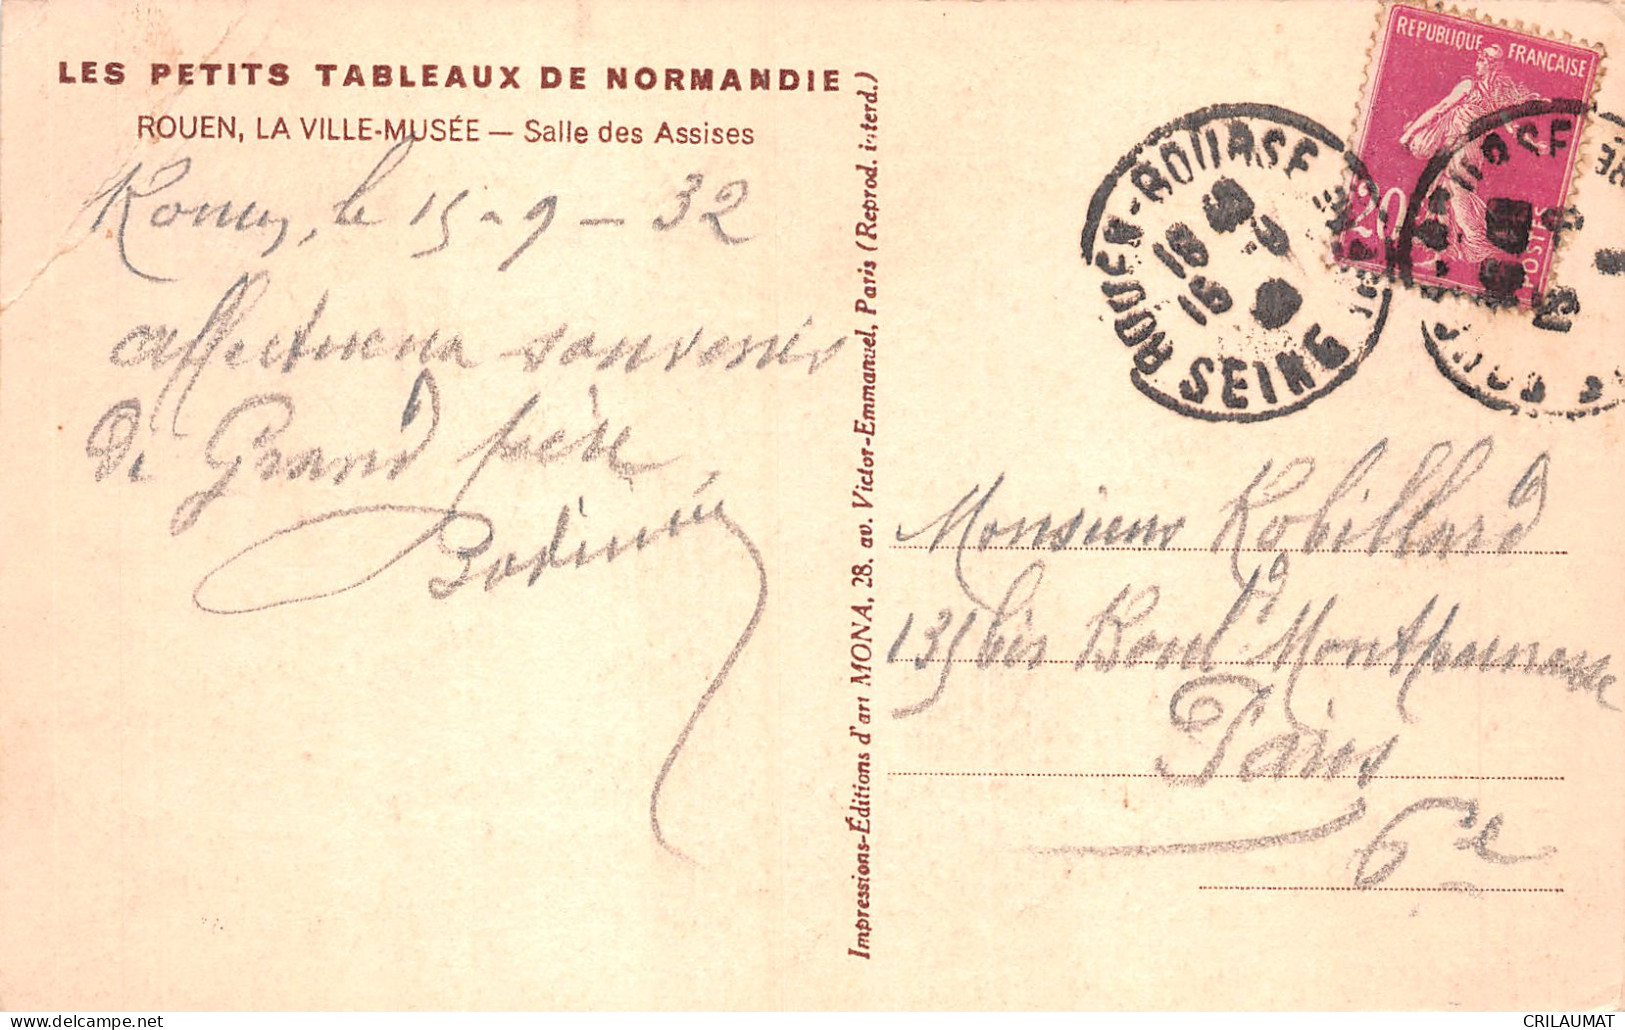 LES PETITS TABLEAUX DE NORMANDIE
ROUEN, LA VILLE-MUSÉE — Salle des Assises
Rouen, le 15-9-32
affectueux souvenir
de Grand père
Impressions-Éditions d'art MONA, 28. av. Victor-Emmanuel, Paris (Reprod. interd.)
REPUBLIQUE FRANÇAISE
20c
POSTES
ROUEN-BOURSE
SEINE INF
Monsieur Robillard
135bis Boul^d Montparnasse
Paris
6e
CRILAUMAT